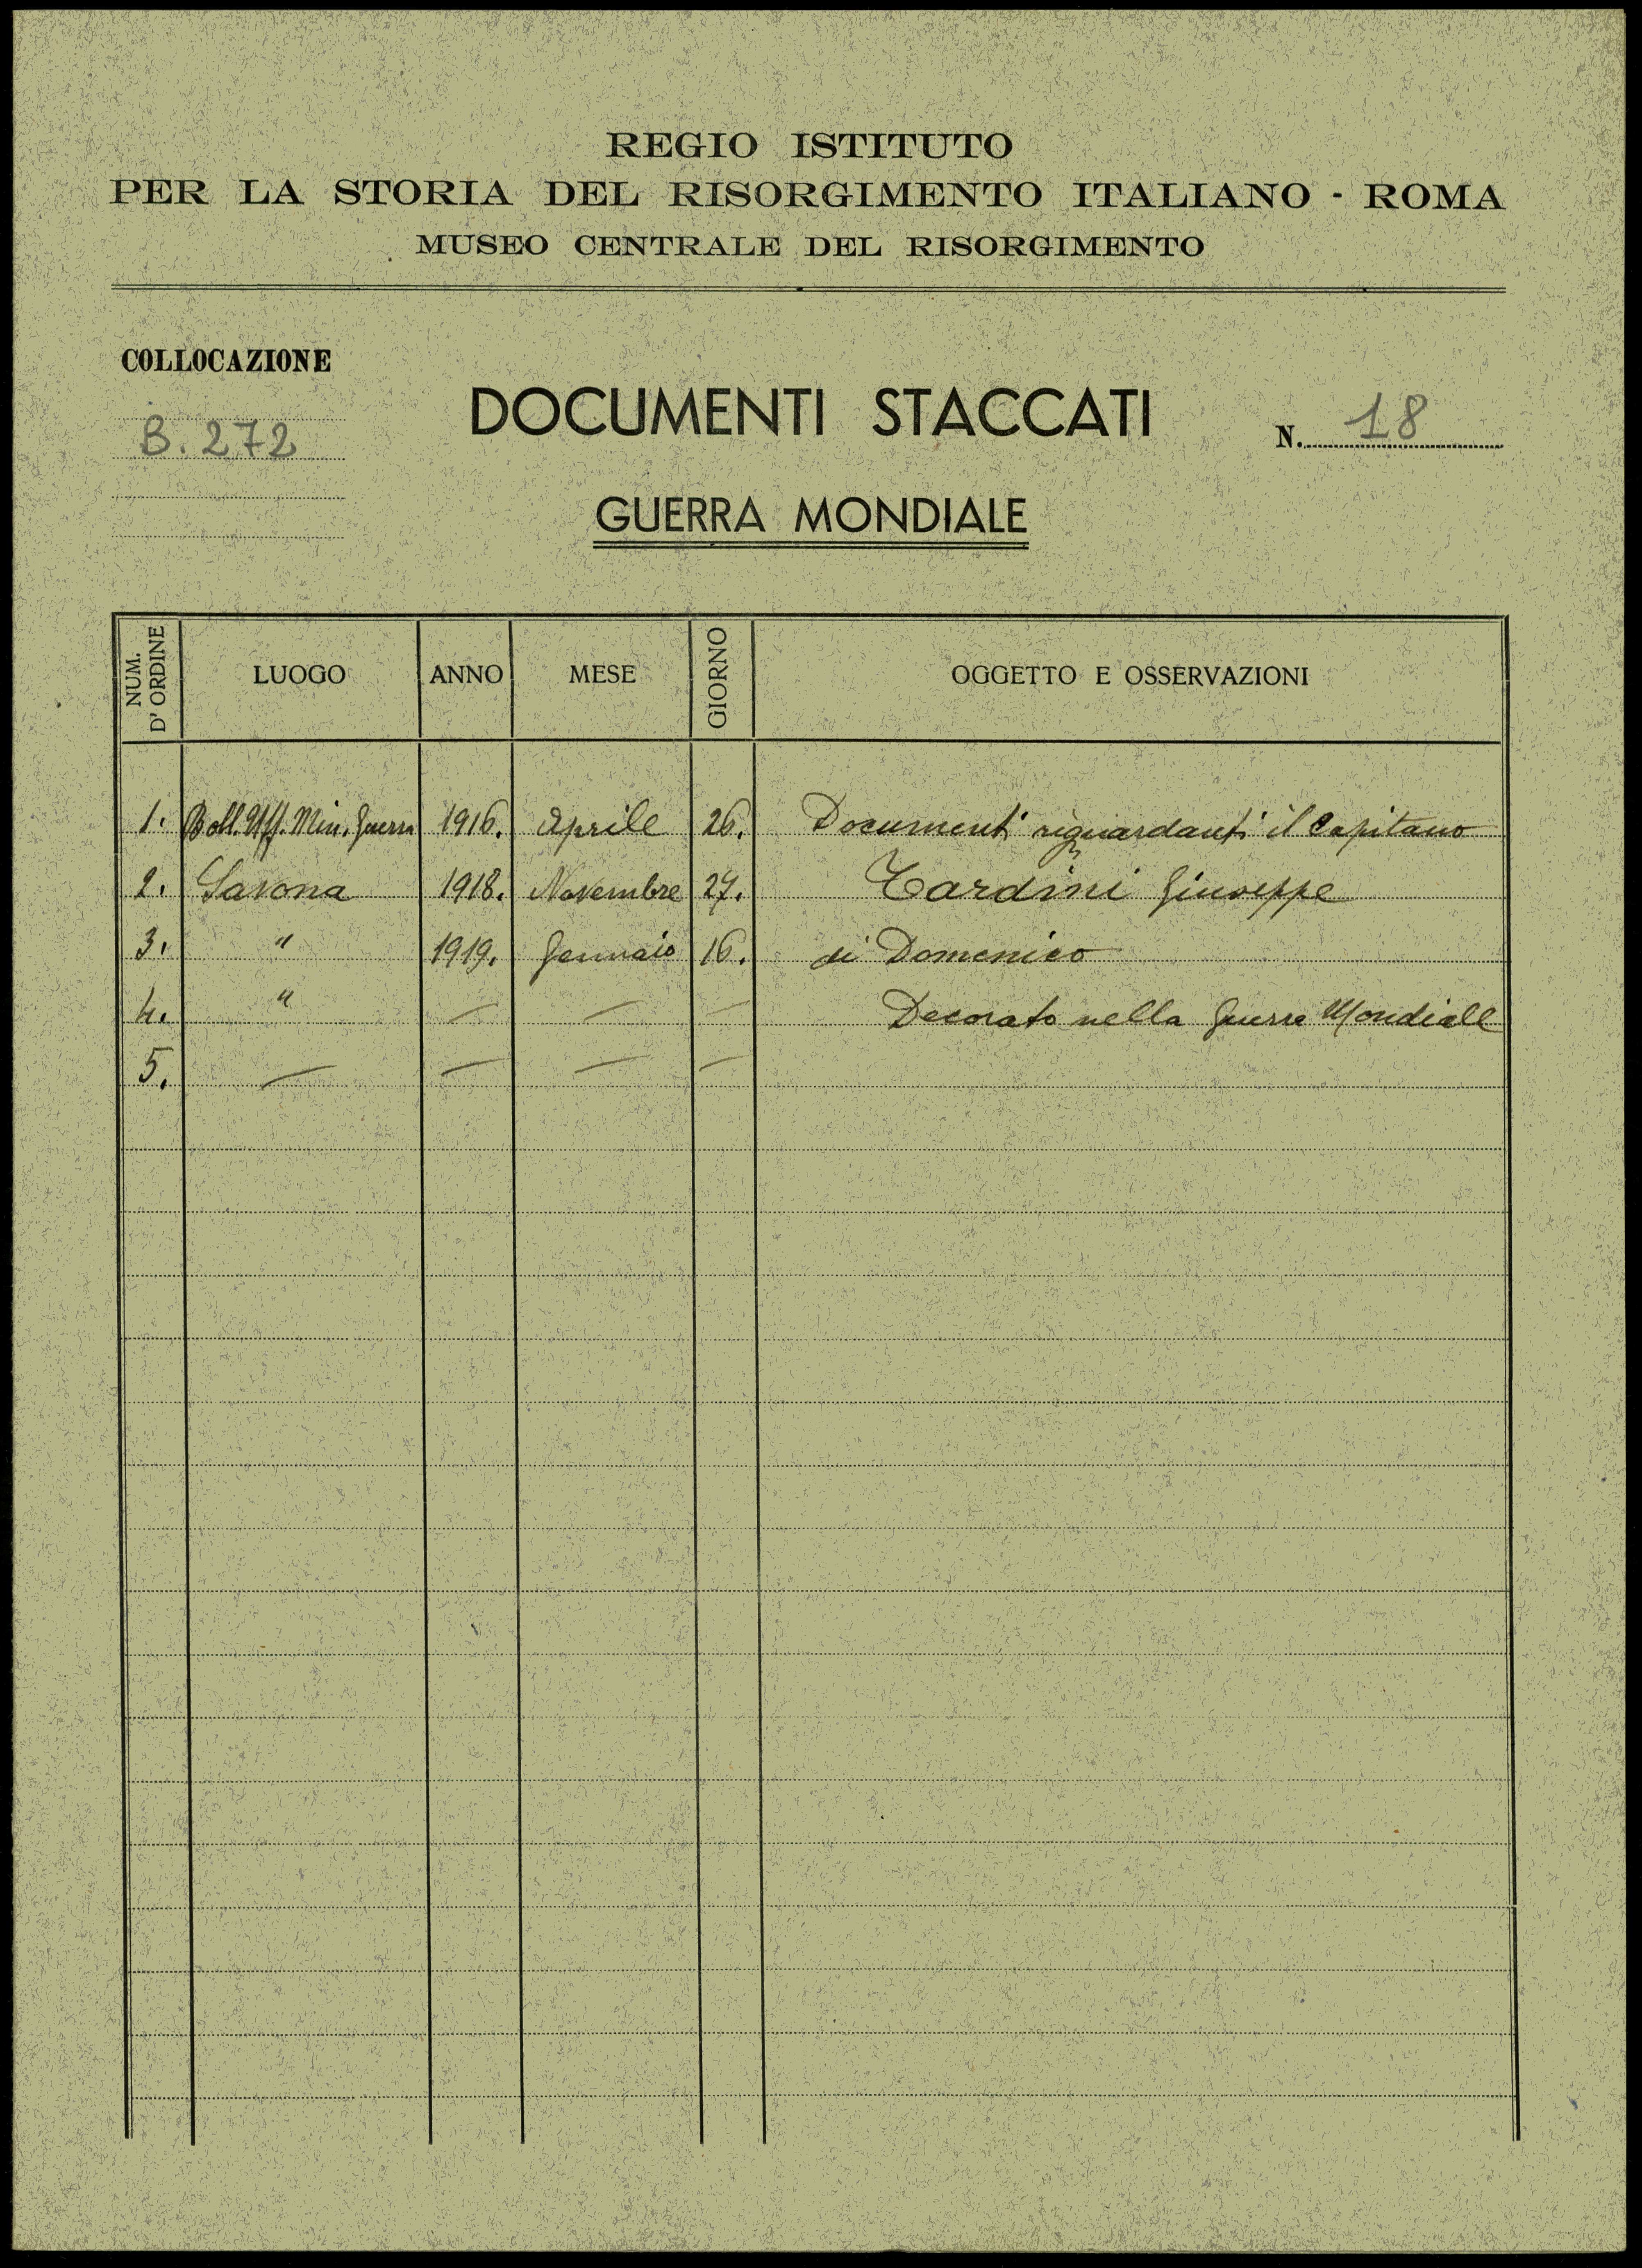 REGIO ISTITUTO
PER LA STORIA DEL RISORGIMENTO ITALIANO - ROMA
MUSEO CENTRALE DEL RISORGIMENTO
COLLOCAZIONE
B. 272
DOCUMENTI STACCATI
N. 18
GUERRA MONDIALE
NUM. D'ORDINE LUOGO ANNO MESE GIORNO OGGETTO E OSSERVAZIONI
1. Boll. Uff. Min. Guerra 1916. Aprile 26. Documenti riguardanti il Capitano
2. Savona 1918. Novembre 27. Tardini Giuseppe
3. " 1919. Gennaio 16. di Domenico
4. " — — — Decorato nella Guerra Mondiale
5. — — — —